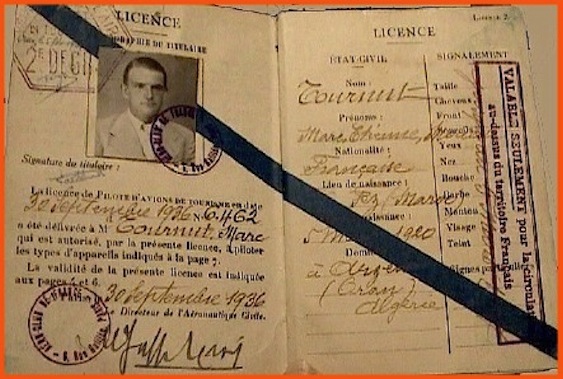 LICENCE
PHOTOGRAPHIE DU TITULAIRE
2F DECI
AERO-CLUB DE FRANCE
Signature du titulaire :
La licence de PILOTE D'AVIONS DE TOURISME en date
30 Septembre 1936 N° 6.462
a été délivrée à Mr Tournut, Marc
qui est autorisé, par la présente licence, à piloter
les types d'appareils indiqués à la page 7.
La validité de la présente licence est indiquée
aux pages 5 et 6.
30 Septembre 1936
Directeur de l'Aéronautique Civile.
AERO-CLUB DE FRANCE
6, Rue
LICENCE
ÉTAT-CIVIL
Nom :
Tournut
Prénoms :
Marc Etienne,
Nationalité :
Française
Lieu de naissance :
Fez (Maroc)
naissance :
5 1920
à
(Oran)
Algérie
SIGNALEMENT
Taille
Cheveux
Front
Yeux
Nez
Bouche
Barbe
Menton
Visage
Teint
Signes particuliers
VALABLE SEULEMENT pour la circulation
au-dessus du territoire Français